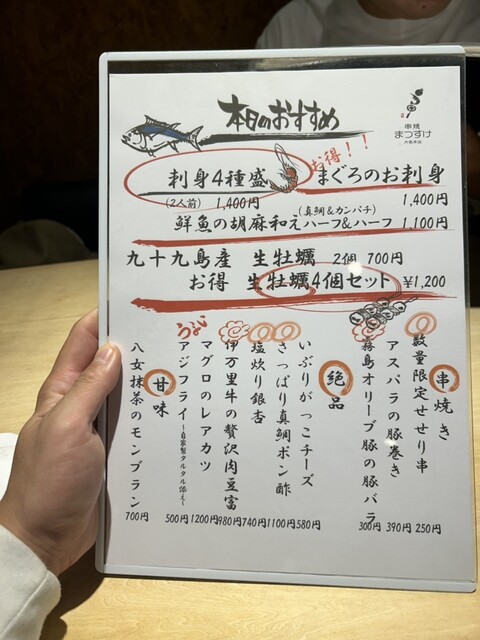 本日のおすすめ
串焼
まつすけ
お得!!
刺身4種盛
(2人前) 1,400円
まぐろのお刺身
1,400円
鮮魚の胡麻和え(真鯛&カンパチ)ハーフ&ハーフ 1,100円
九十九島産 生牡蠣 2個 700円
お得 生牡蠣4個セット ¥1,200
串焼き
数量限定せせり串 250円
アスパラの豚巻き 390円
霧島オリーブ豚の豚バラ 300円
絶品
いぶりがっこチーズ 580円
さっぱり真鯛ポン酢 1100円
塩炒り銀杏 740円
伊万里牛の贅沢肉豆富 980円
マグロのレアカツ 1200円
アジフライ~自家製タルタル添え~ 500円
甘味
八女抹茶のモンブラン 700円